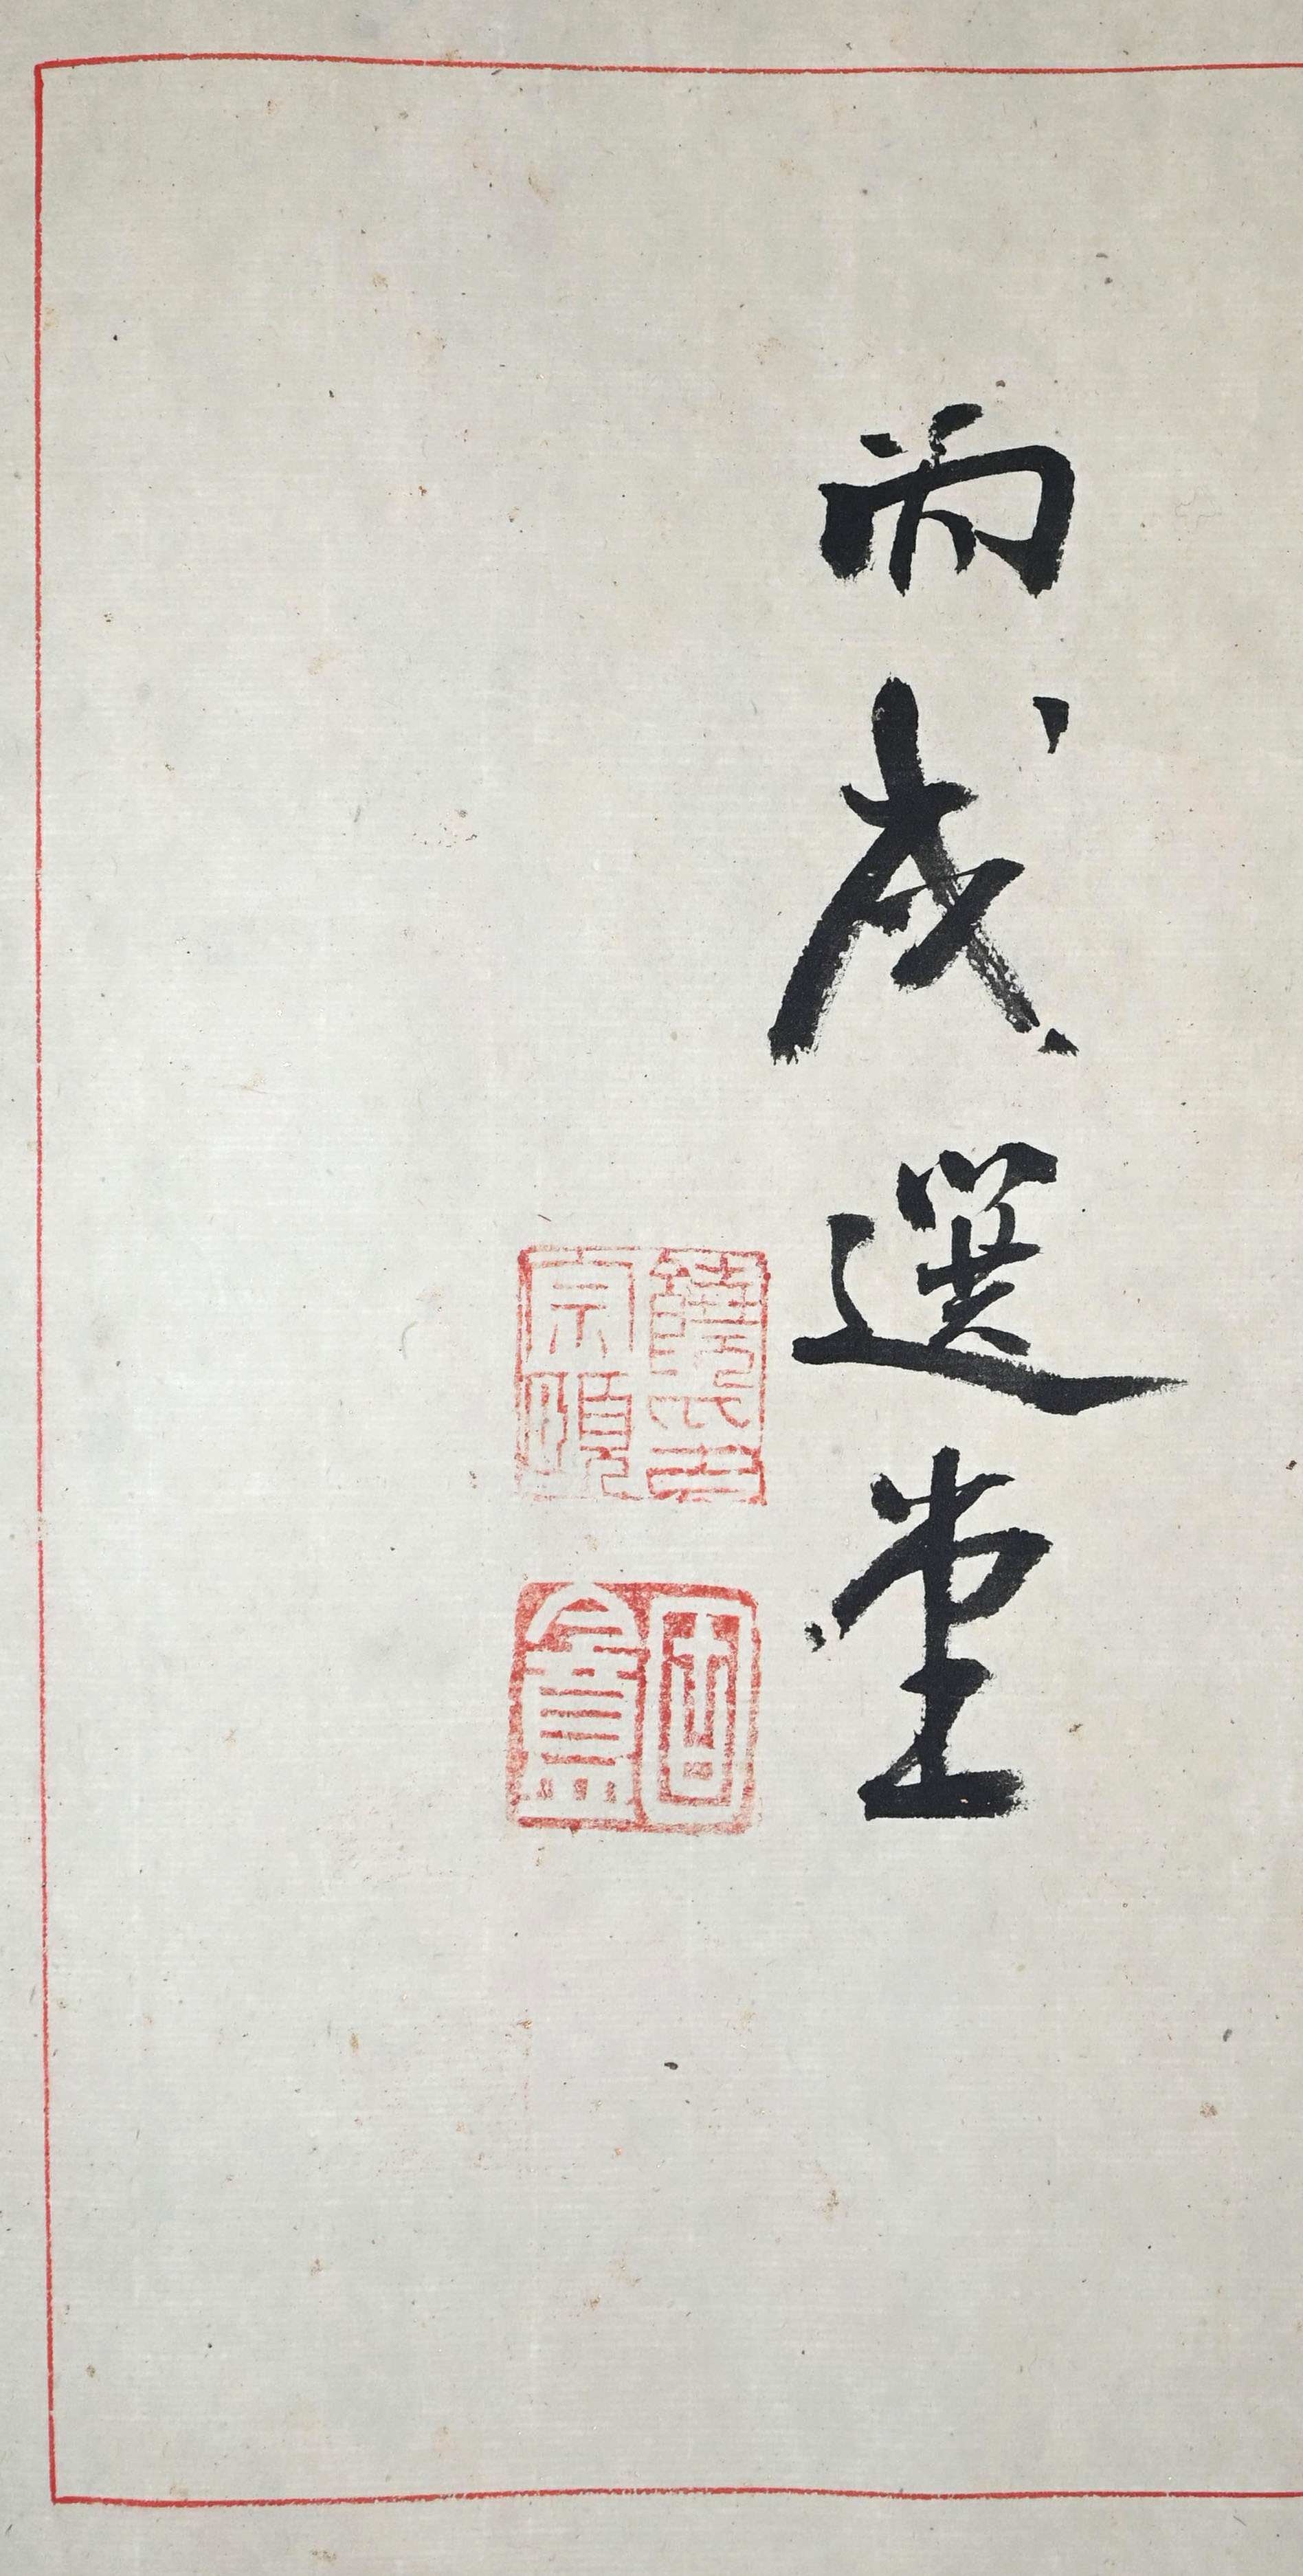 丙戌選堂
饒宗頤
固盦